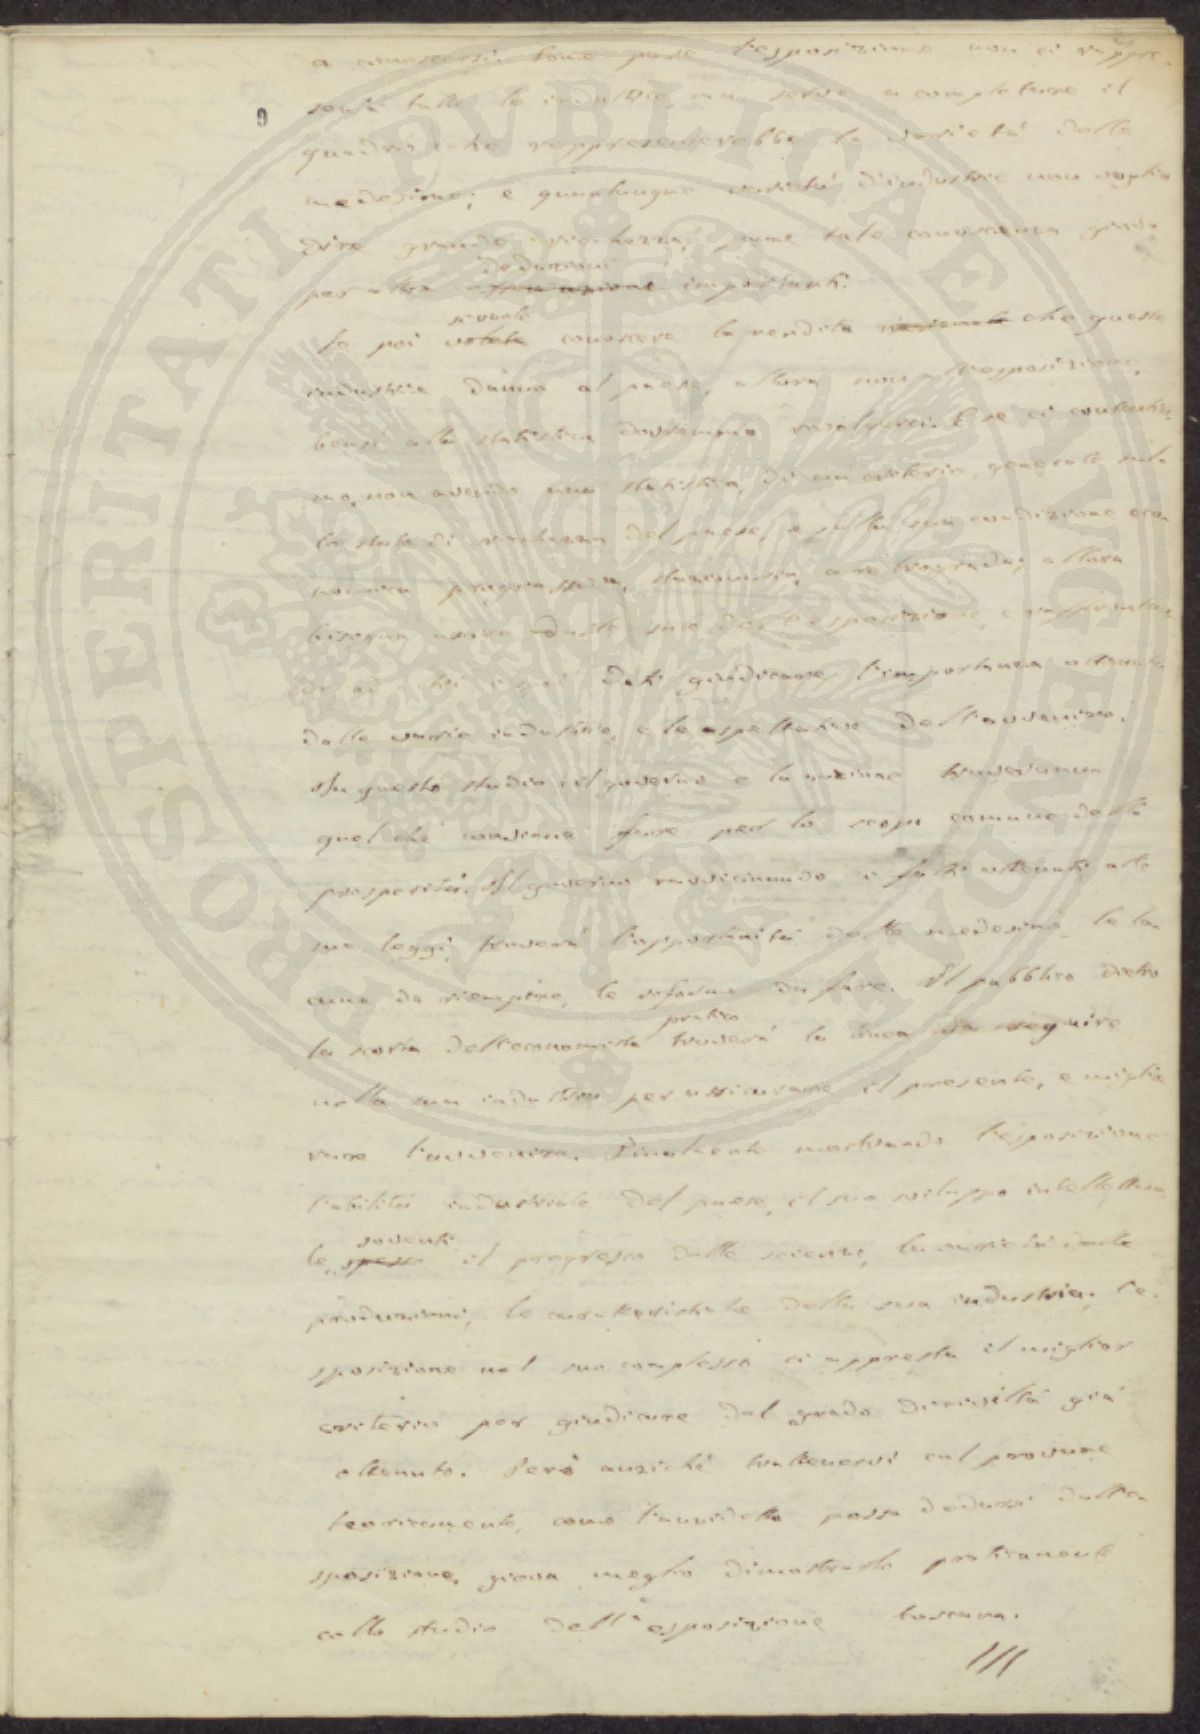 a conoscersi. Come pure l'esposizione non ci rappre-
senta tutte le industrie, ma serve a completare il
quadro che rappresenterebbe la varietà delle
medesime; e quantunque varietà d'industrie non voglia
dire grande ricchezza, pure tale conoscenza giova
deduzioni
per altre importanti.
si vuole
Se poi volete conoscere la rendita nazionale che queste
industrie danno al paese, allora non all'esposizione,
bensì alla statistica dovremmo rivolgerci. E se ci contentia-
mo, non avendo una statistica, di un criterio generale sul-
lo stato di ricchezza del paese, e sulla sua condizione eco-
nomica progressiva, stazionaria, o retrograda; allora
bisogna dell'esposizione, e
dati giudicare l'importanza ottenuta
dalle varie industrie, e le aspettative dell'avvenire.
In questo studio il governo e la nazione troveranno
quel che conviene fare per lo scopo comune della
prosperità. Il governo ravvicinando i fatti ottenuti alle
sue leggi, troverà l'opportunità delle medesime, le la-
cune da riempire, le riforme da fare. Il pubblico dietro
pratico
la scorta dell'economista troverà la linea da seguire
nella sua industria per assicurare il presente, e miglio-
rare l'avvenire. Finalmente mostrando l'esposizione
l'abilità industriale del paese, il suo sviluppo intellettua-
sovente
le, spesso il progresso delle scienze, la varietà delle
produzioni, le caratteristiche della sua industria; l'e-
sposizione nel suo complesso ci appresta il miglior
criterio per giudicare del grado di civiltà già
ottenuto. Però anziché trattenervi col provare
teoricamente, come l'anzidetto possa dedursi dall'e-
sposizione, giova meglio dimostrarlo praticamente
collo studio dell'esposizione toscana.
PROSPERITATI PVBLICAE AVGENDAE